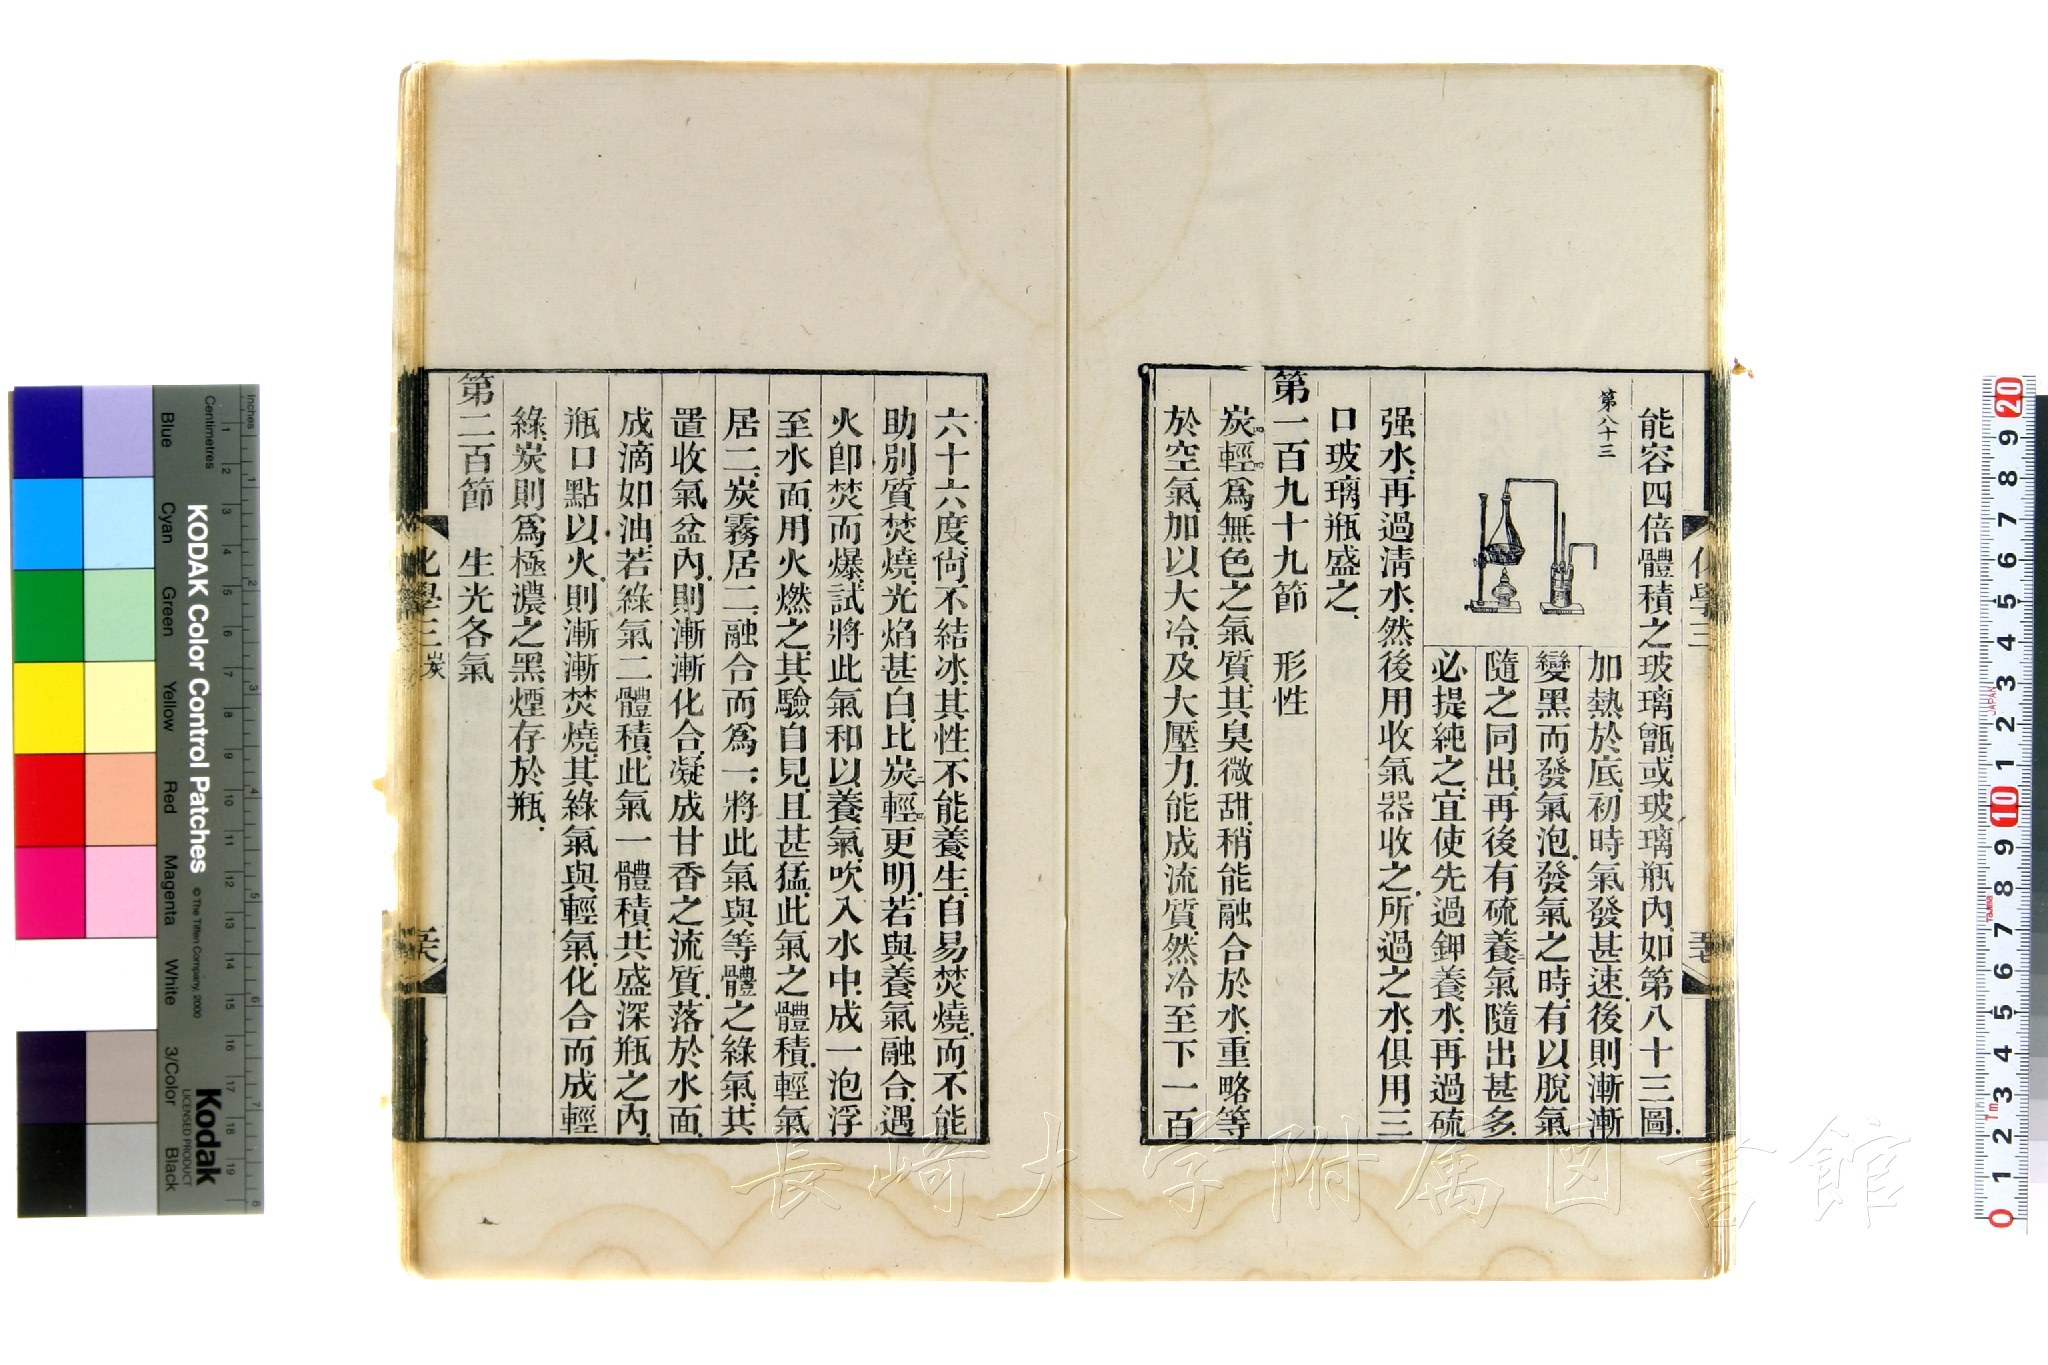 能容四倍體積之玻璃甑或玻璃瓶內如第八十三圖
第八十三
加熱於底初時氣發甚速後則漸漸
變黑而發氣泡發氣之時有以脫氣
隨之同出再後有硫養氣隨出甚多
必提純之宜使先過鉀養水再過硫
强水再過淸水然後用收氣器收之所過之水俱用三
口玻璃瓶盛之
第一百九十九節　形性
炭輕爲無色之氣質其臭微甜稍能融合於水重略等
於空氣加以大冷及大壓力能成流質然冷至下一百
化學三
六十六度尙不結冰其性不能養生自易焚燒而不能
助別質焚燒光焰甚白比炭輕更明若與養氣融合遇
火卽焚而爆試將此氣和以養氣吹入水中成一泡浮
至水面用火燃之其驗自見且甚猛此氣之體積輕氣
居二炭霧居二融合而爲一將此氣與等體之綠氣共
置收氣盆內則漸漸化合凝成甘香之流質落於水面
成滴如油若綠氣二體積此氣一體積共盛深瓶之內
瓶口點以火則漸漸焚燒其綠氣與輕氣化合而成輕
綠炭則爲極濃之黑煙存於瓶
第二百節　生光各氣
化學三 炭
長崎大学附属図書館
KODAK Color Control Patches
© The Tiffen Company, 2000
Kodak
LICENSED PRODUCT
Inches
Centimetres
Blue
Cyan
Green
Yellow
Red
Magenta
White
3/Color
Black
1 2 3 4 5 6 7 8
1 2 3 4 5 6 7 8 9 10 11 12 13 14 15 16 17 18 19
20 9 8 7 6 5 4 3 2 1 10 9 8 7 6 5 4 3 2 1 0
JAPAN
Tajima